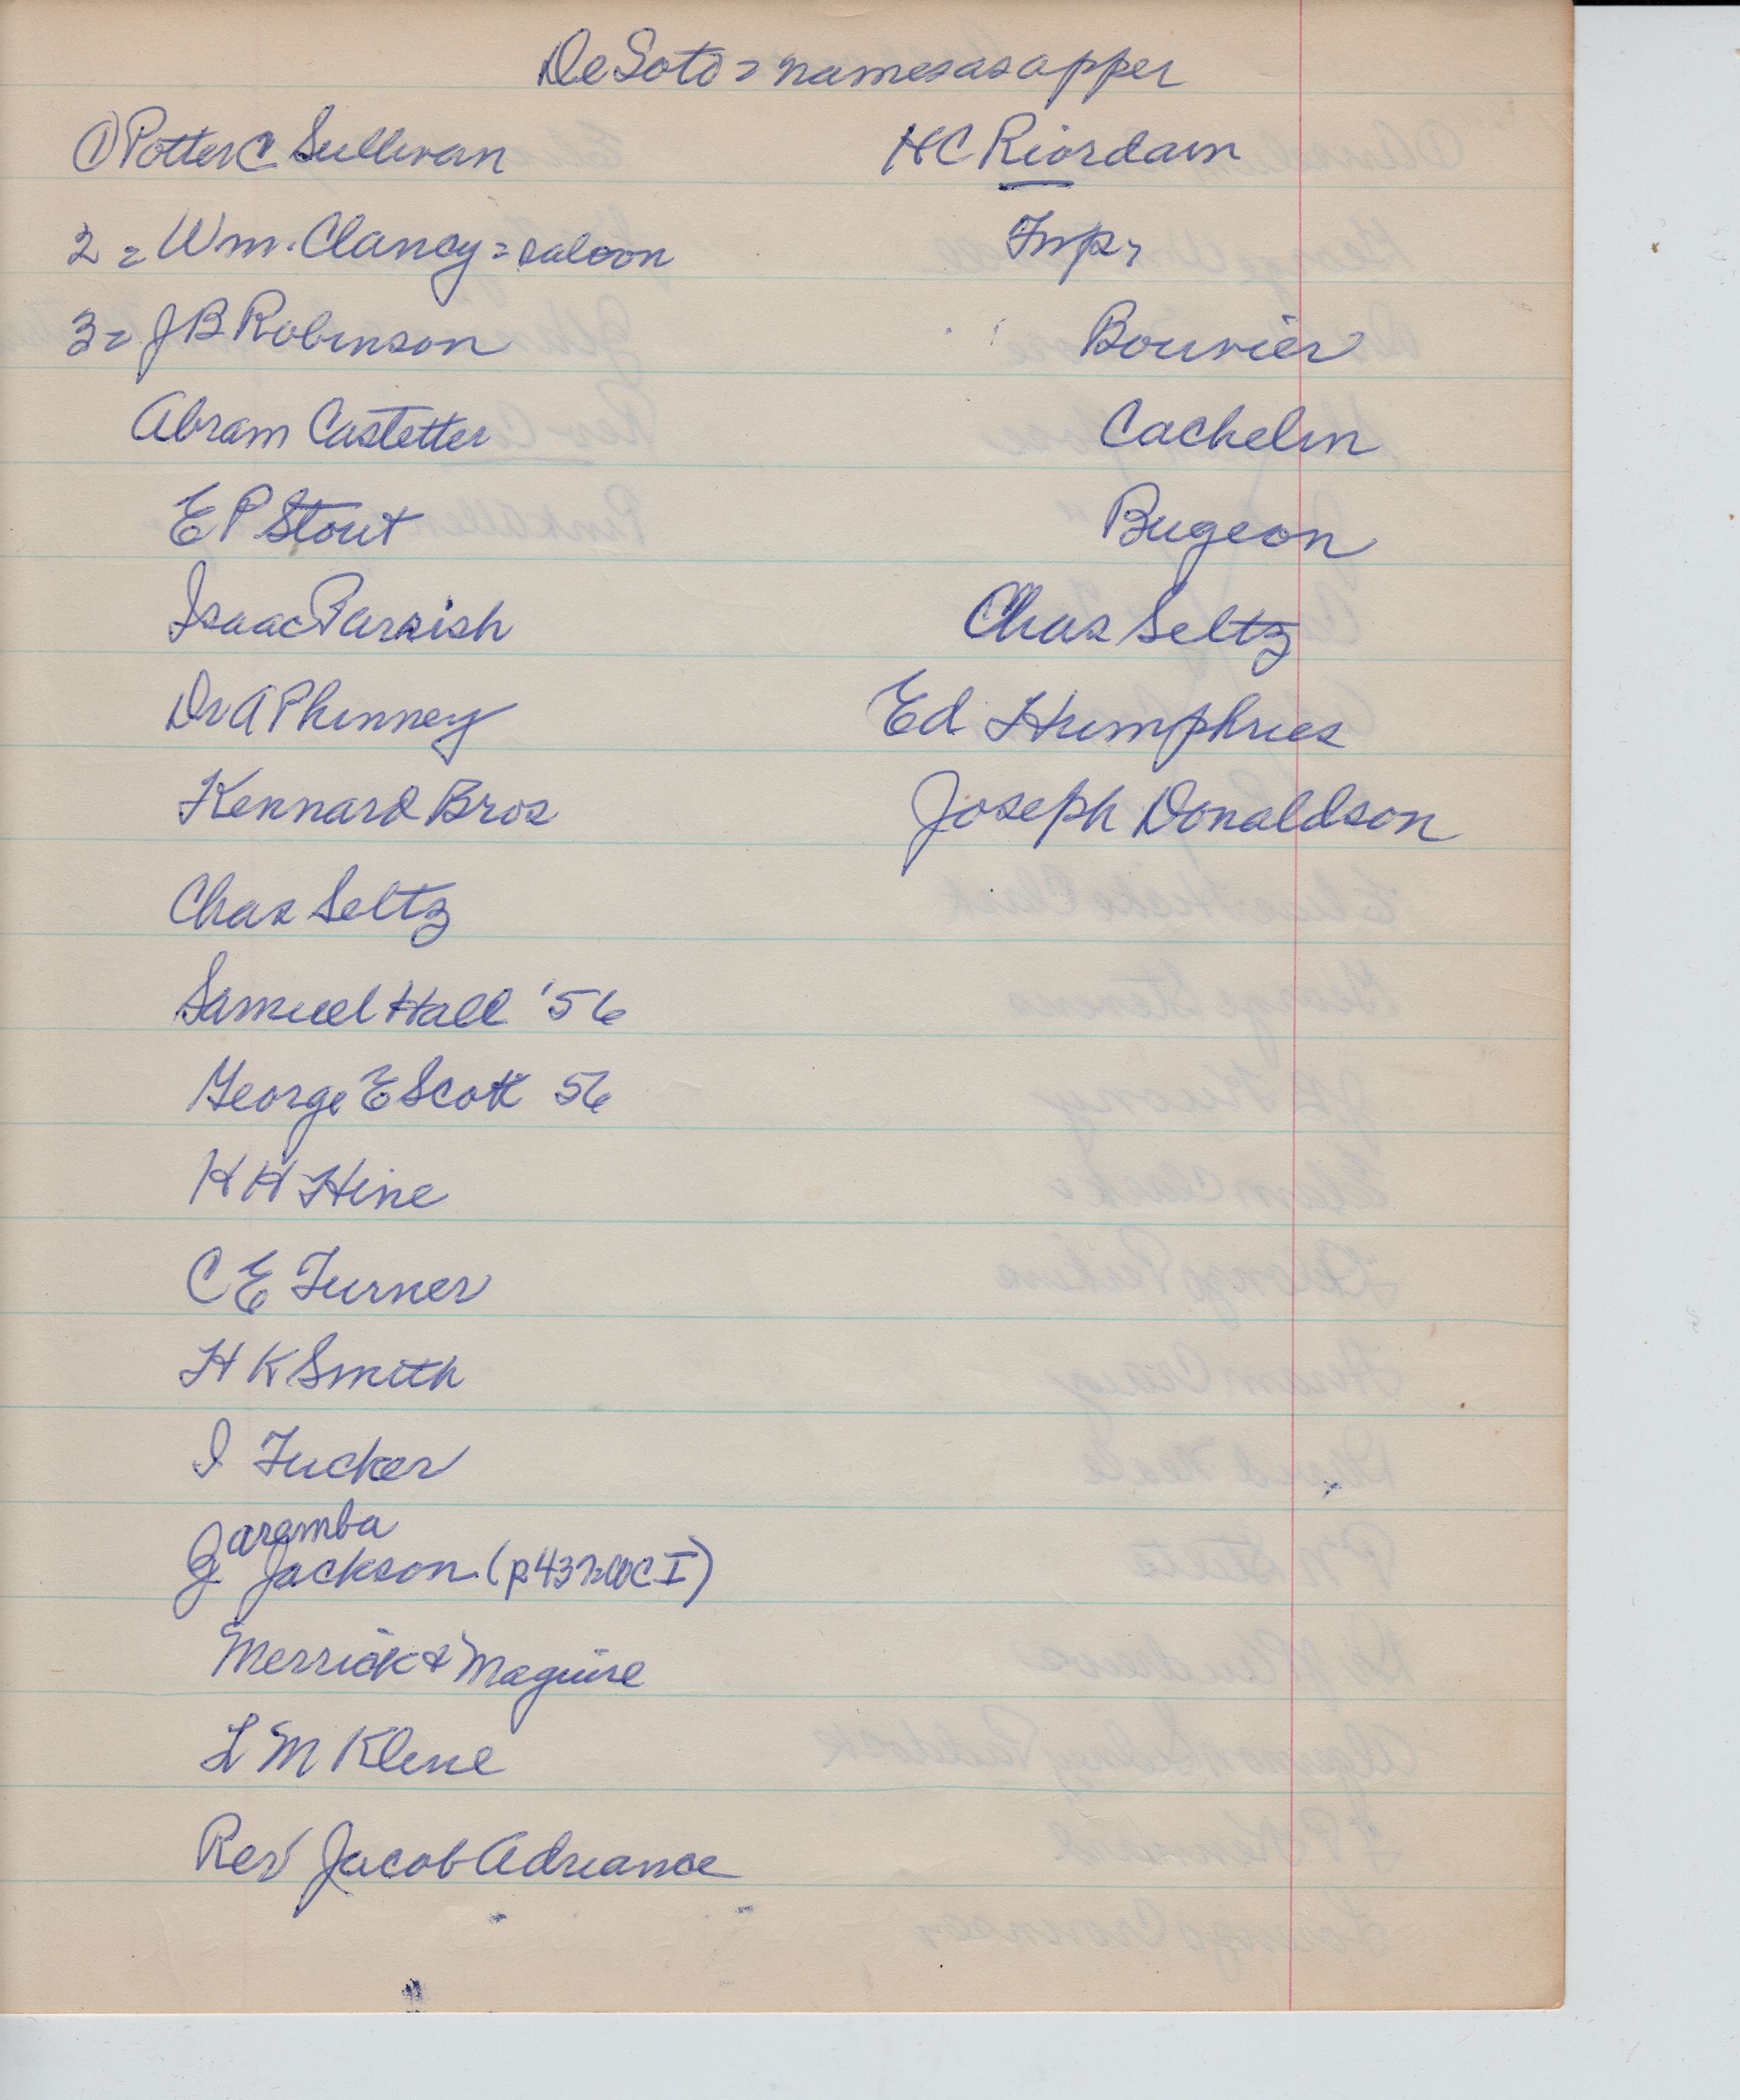 DeSoto = names as apper
① Potter C Sullivan
2 = Wm. Clancy = saloon
3 = J B Robinson
Abram Castetter
E P Stout
Isaac Parrish
Dr A Phinney
Kennard Bros
Chas Seltz
Samuel Hall '56
George E Scott 56
H H Hine
C E Turner
H K Smith
I Tucker
aramba
J Jackson (p437
Merrick & Maguire
L M Kline
Rev Jacob Adriance
HC Riordam
Imp,
Bouvier
Cachelin
Bugeon
Chas Seltz
Ed Humphries
Joseph Donaldson